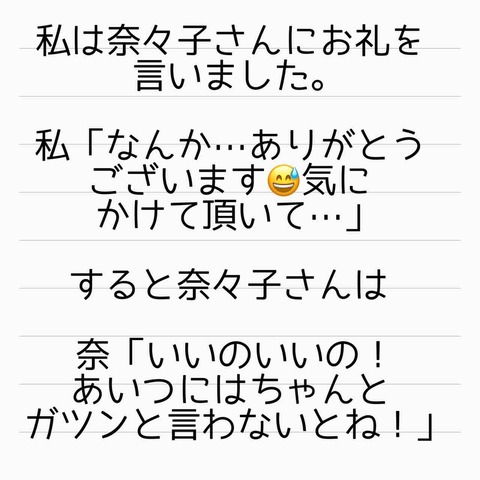 私は奈々子さんにお礼を
言いました。
私「なんか…ありがとう
ございます😅気に
かけて頂いて…」
すると奈々子さんは
奈「いいのいいの！
あいつにはちゃんと
ガツンと言わないとね！」